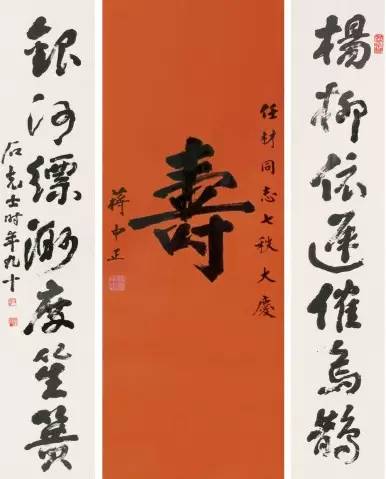 楊柳依遲催烏鵲
任材同志七秩大慶
壽
蔣中正
銀河縹渺度笙簧
石克士时年九十